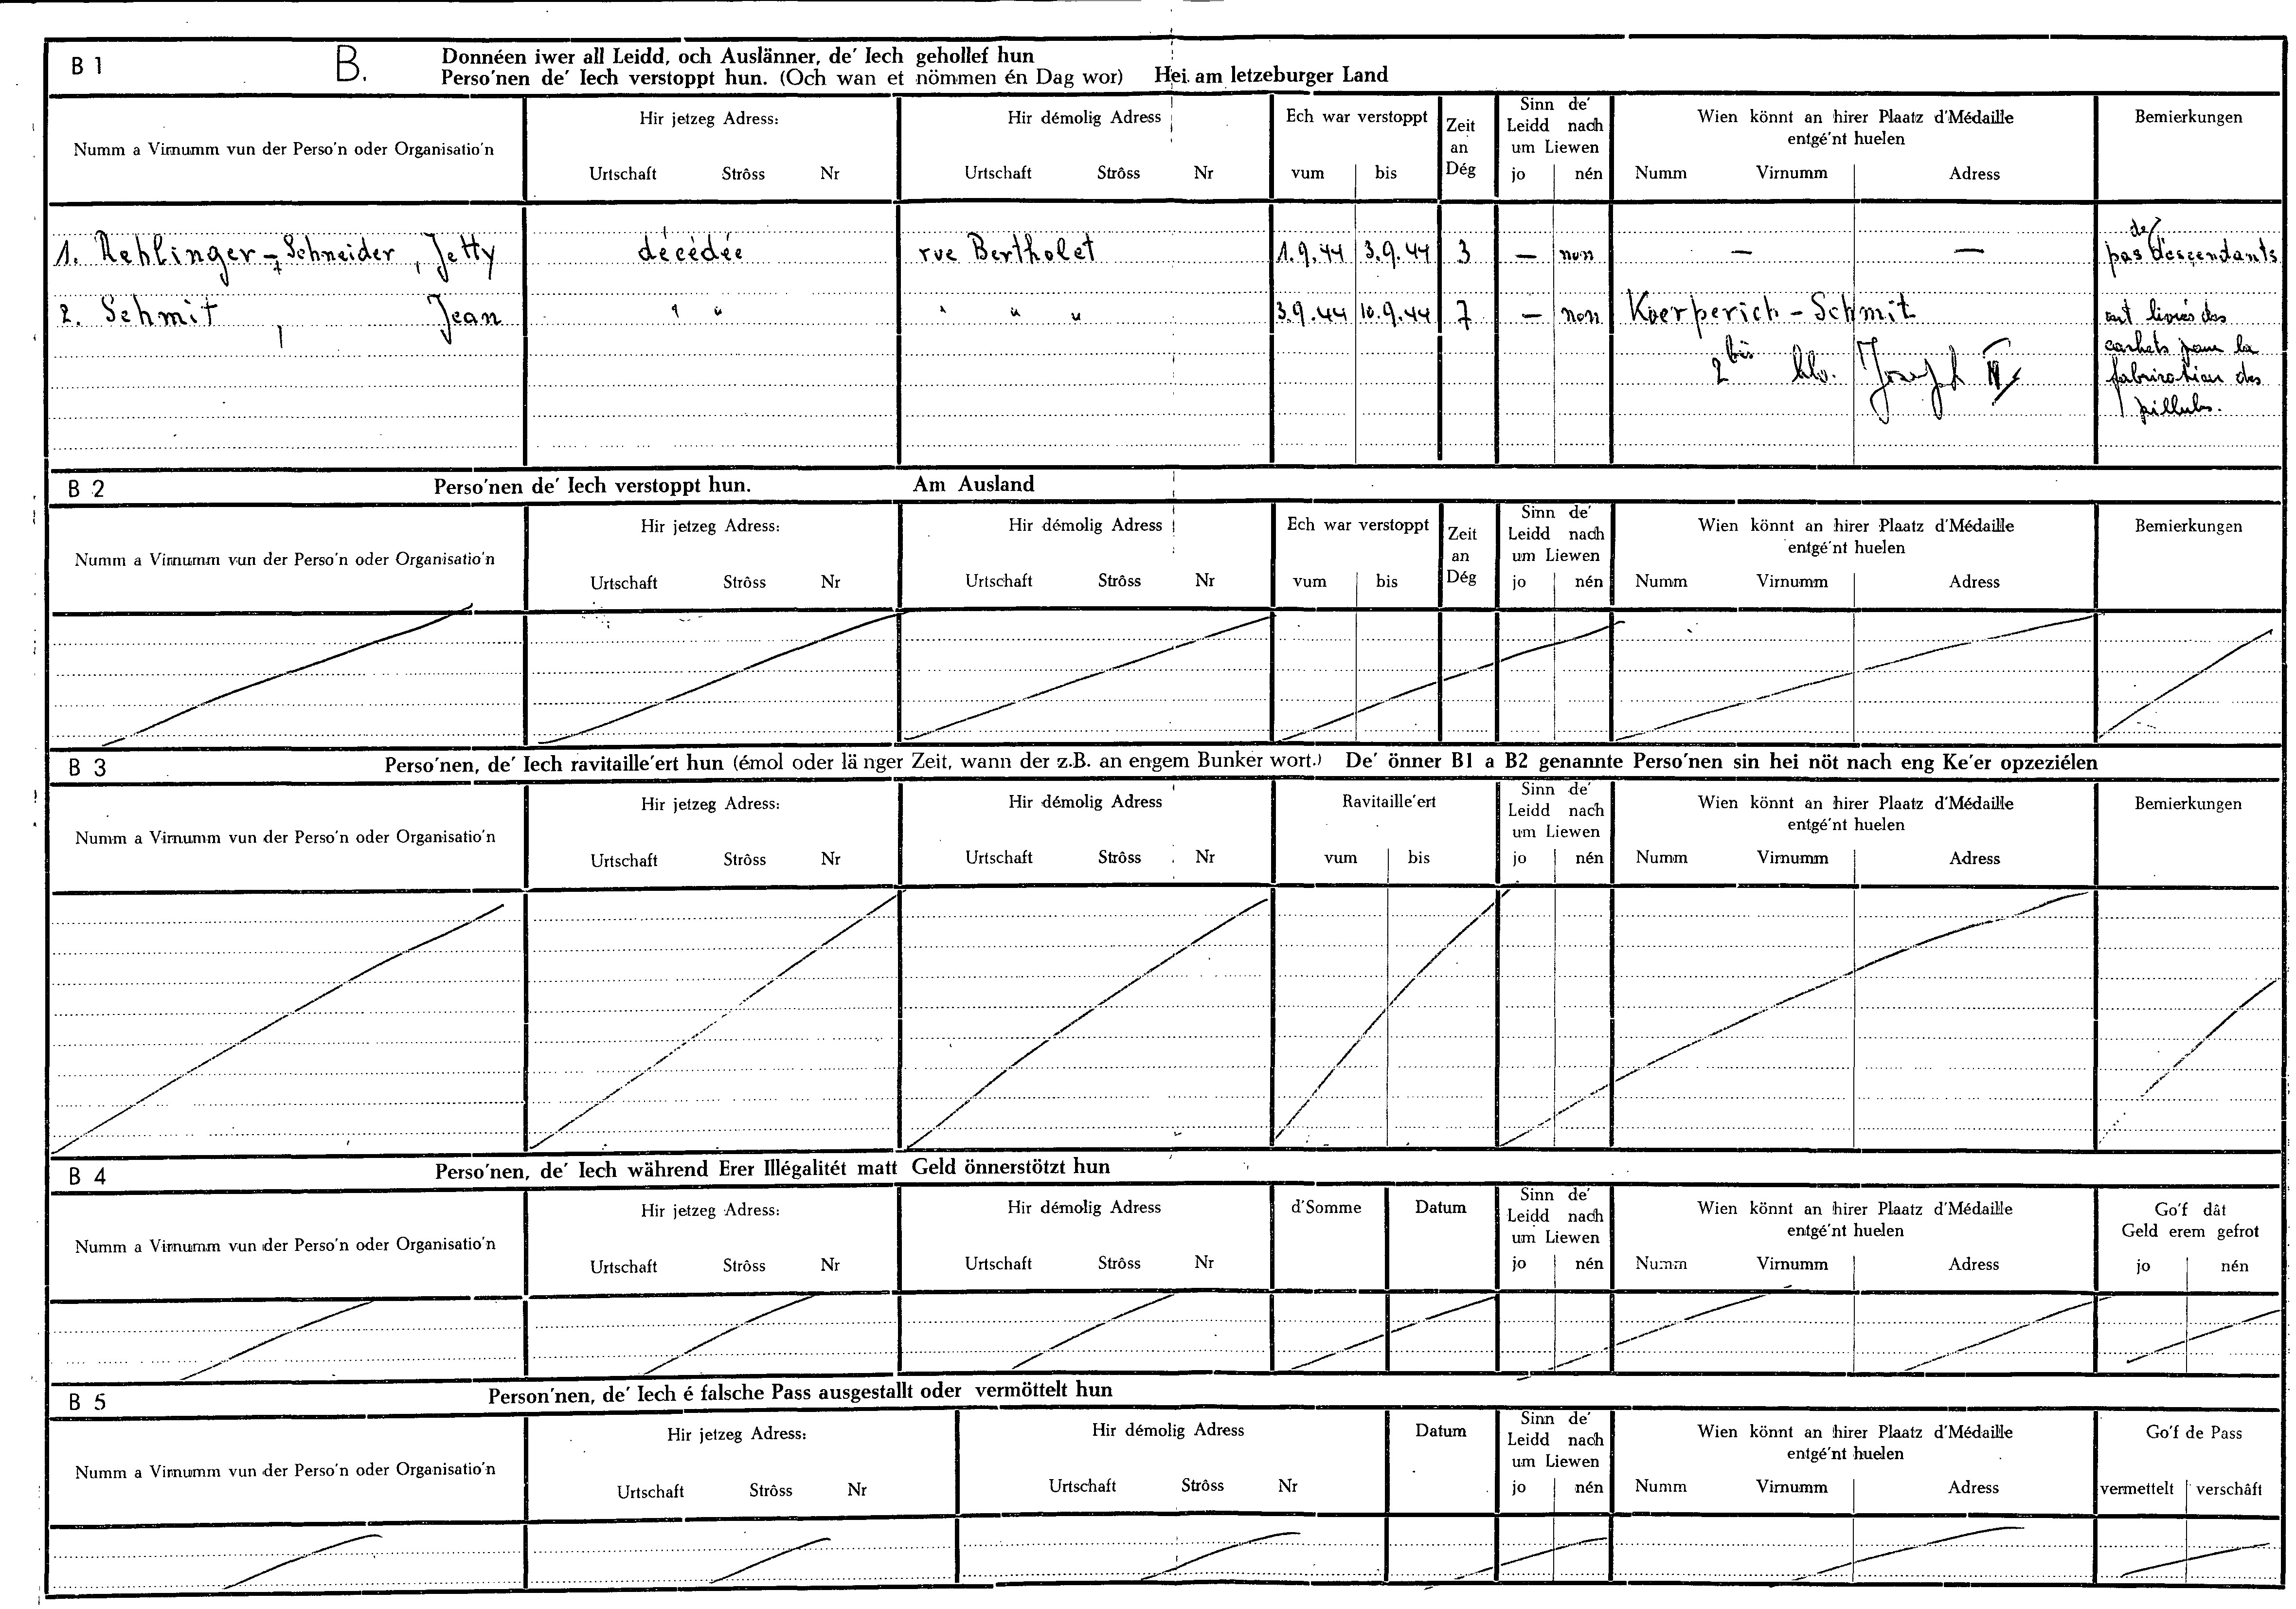 B 1 B. Donnéen iwer all Leidd, och Auslänner, de' Iech gehollef hun
Perso'nen de' Iech verstoppt hun. (Och wan et nömmen én Dag wor) Hei am letzeburger Land
Numm a Virnumm vun der Perso'n oder Organisatio'n
Hir jetzeg Adress:
Urtschaft Strôss Nr
Hir démolig Adress
Urtschaft Strôss Nr
Ech war verstoppt
vum bis
Zeit
an
Dég
Sinn de'
Leidd nach
um Liewen
jo nén
Wien könnt an hirer Plaatz d'Médaille
entgé'nt huelen
Numm Virnumm Adress
Bemierkungen
1. Rehlinger - Schneider, Jetty décédée rue Bertholet 1.9.44 3.9.44 3 — non — — pas de descendants
2. Schmit, Jean " " " " " 3.9.44 10.9.44 7 — non Koerperich - Schmit
2bis blv. Joseph II
ont livrés des
cachets pour la
fabrication des
pillules.
B 2 Perso'nen de' Iech verstoppt hun. Am Ausland
Numm a Virnumm vun der Perso'n oder Organisatio'n
Hir jetzeg Adress:
Urtschaft Strôss Nr
Hir démolig Adress
Urtschaft Strôss Nr
Ech war verstoppt
vum bis
Zeit
an
Dég
Sinn de'
Leidd nach
um Liewen
jo nén
Wien könnt an hirer Plaatz d'Médaille
entgé'nt huelen
Numm Virnumm Adress
Bemierkungen
B 3 Perso'nen, de' Iech ravitaille'ert hun (émol oder länger Zeit, wann der z.B. an engem Bunker wort.) De' önner B1 a B2 genannte Perso'nen sin hei nöt nach eng Ke'er opzeziélen
Numm a Virnumm vun der Perso'n oder Organisatio'n
Hir jetzeg Adress:
Urtschaft Strôss Nr
Hir démolig Adress
Urtschaft Strôss Nr
Ravitaille'ert
vum bis
Sinn de'
Leidd nach
um Liewen
jo nén
Wien könnt an hirer Plaatz d'Médaille
entgé'nt huelen
Numm Virnumm Adress
Bemierkungen
B 4 Perso'nen, de' Iech während Erer Illégalitét matt Geld önnerstötzt hun
Numm a Virnumm vun der Perso'n oder Organisatio'n
Hir jetzeg Adress:
Urtschaft Strôss Nr
Hir démolig Adress
Urtschaft Strôss Nr
d'Somme
Datum
Sinn de'
Leidd nach
um Liewen
jo nén
Wien könnt an hirer Plaatz d'Médaille
entgé'nt huelen
Numm Virnumm Adress
Go'f dât
Geld erem gefrot
jo nén
B 5 Person'nen, de' Iech é falsche Pass ausgestallt oder vermöttelt hun
Numm a Virnumm vun der Perso'n oder Organisatio'n
Hir jetzeg Adress:
Urtschaft Strôss Nr
Hir démolig Adress
Urtschaft Strôss Nr
Datum
Sinn de'
Leidd nach
um Liewen
jo nén
Wien könnt an hirer Plaatz d'Médaille
entgé'nt huelen
Numm Virnumm Adress
Go'f de Pass
vermettelt verschâft